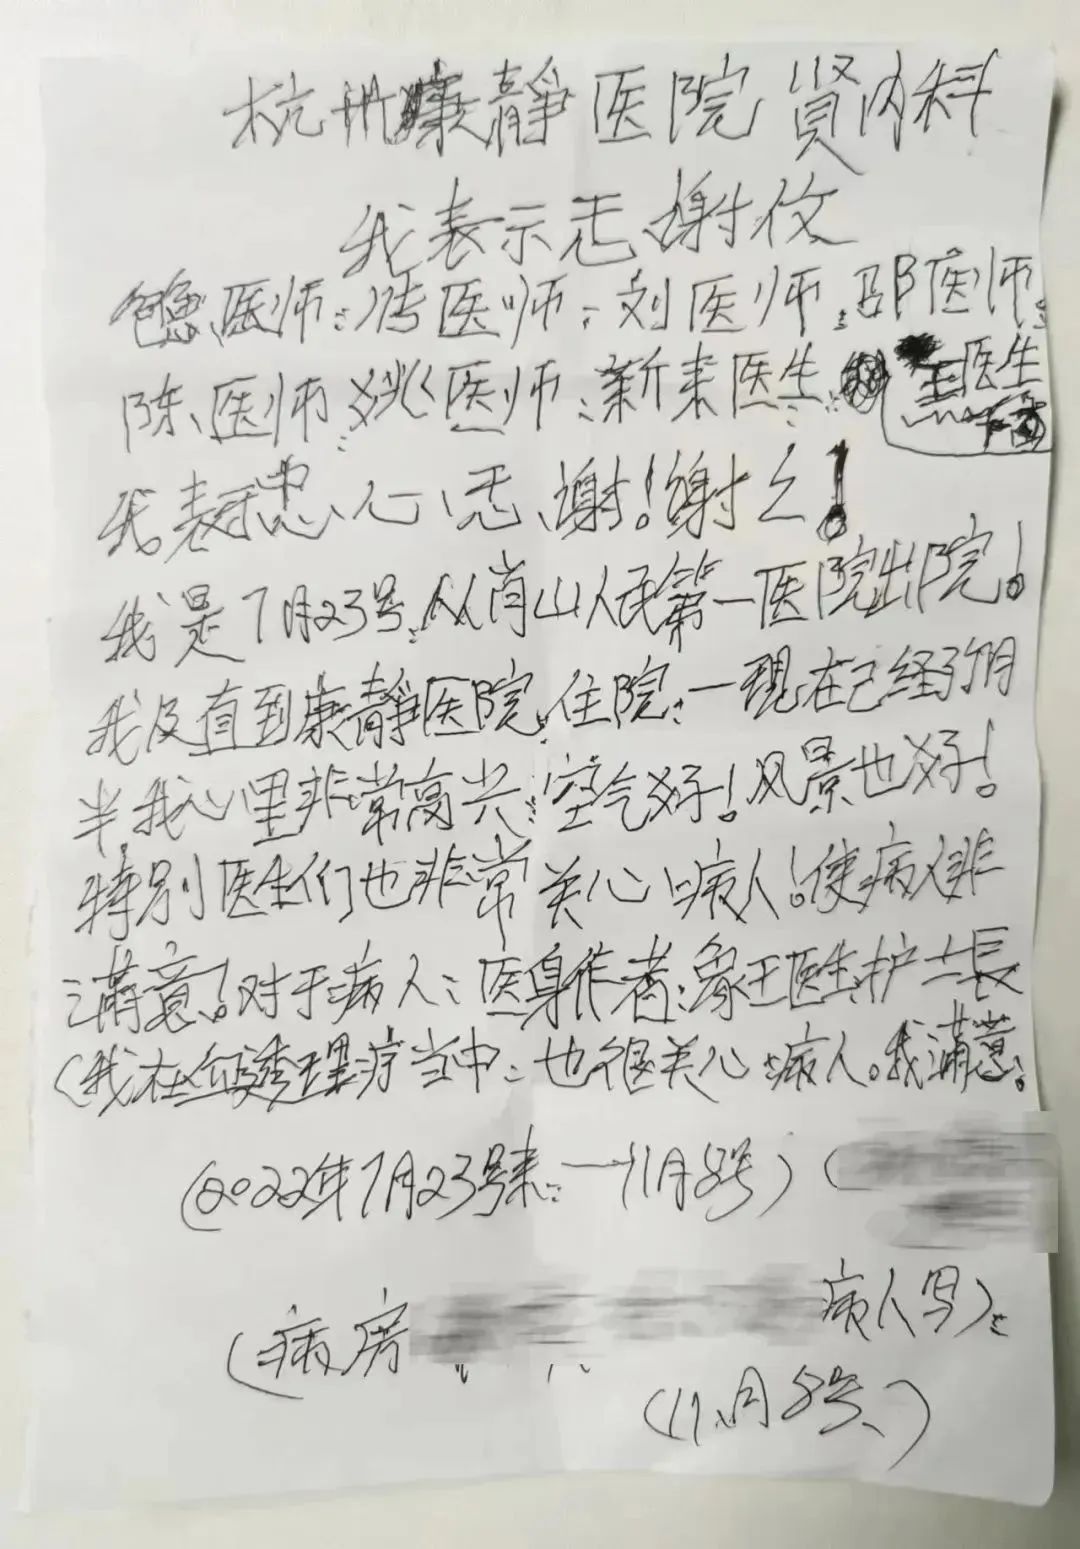 杭州康静医院肾内科
我表示忎谢仅
医师:传医师:刘医师:邵医师:
陈医师姚医师:新来医生
医生
我表示忠心忎谢!谢之!
我是7月23号从肖山人民第一医院出院!
我及直到康静医院住院:一现在己经3个月
半我心里非常高兴:空气好!风景也好!
特别医生们也非常关心病人!使病人非
满意!对于病人:医身作者:象王医生护士長
(我在血透理疗当中:也很关心病人。我满意。
(2022年7月23号来:一11月8号)(
(病房 病人写):
(11月8号、)